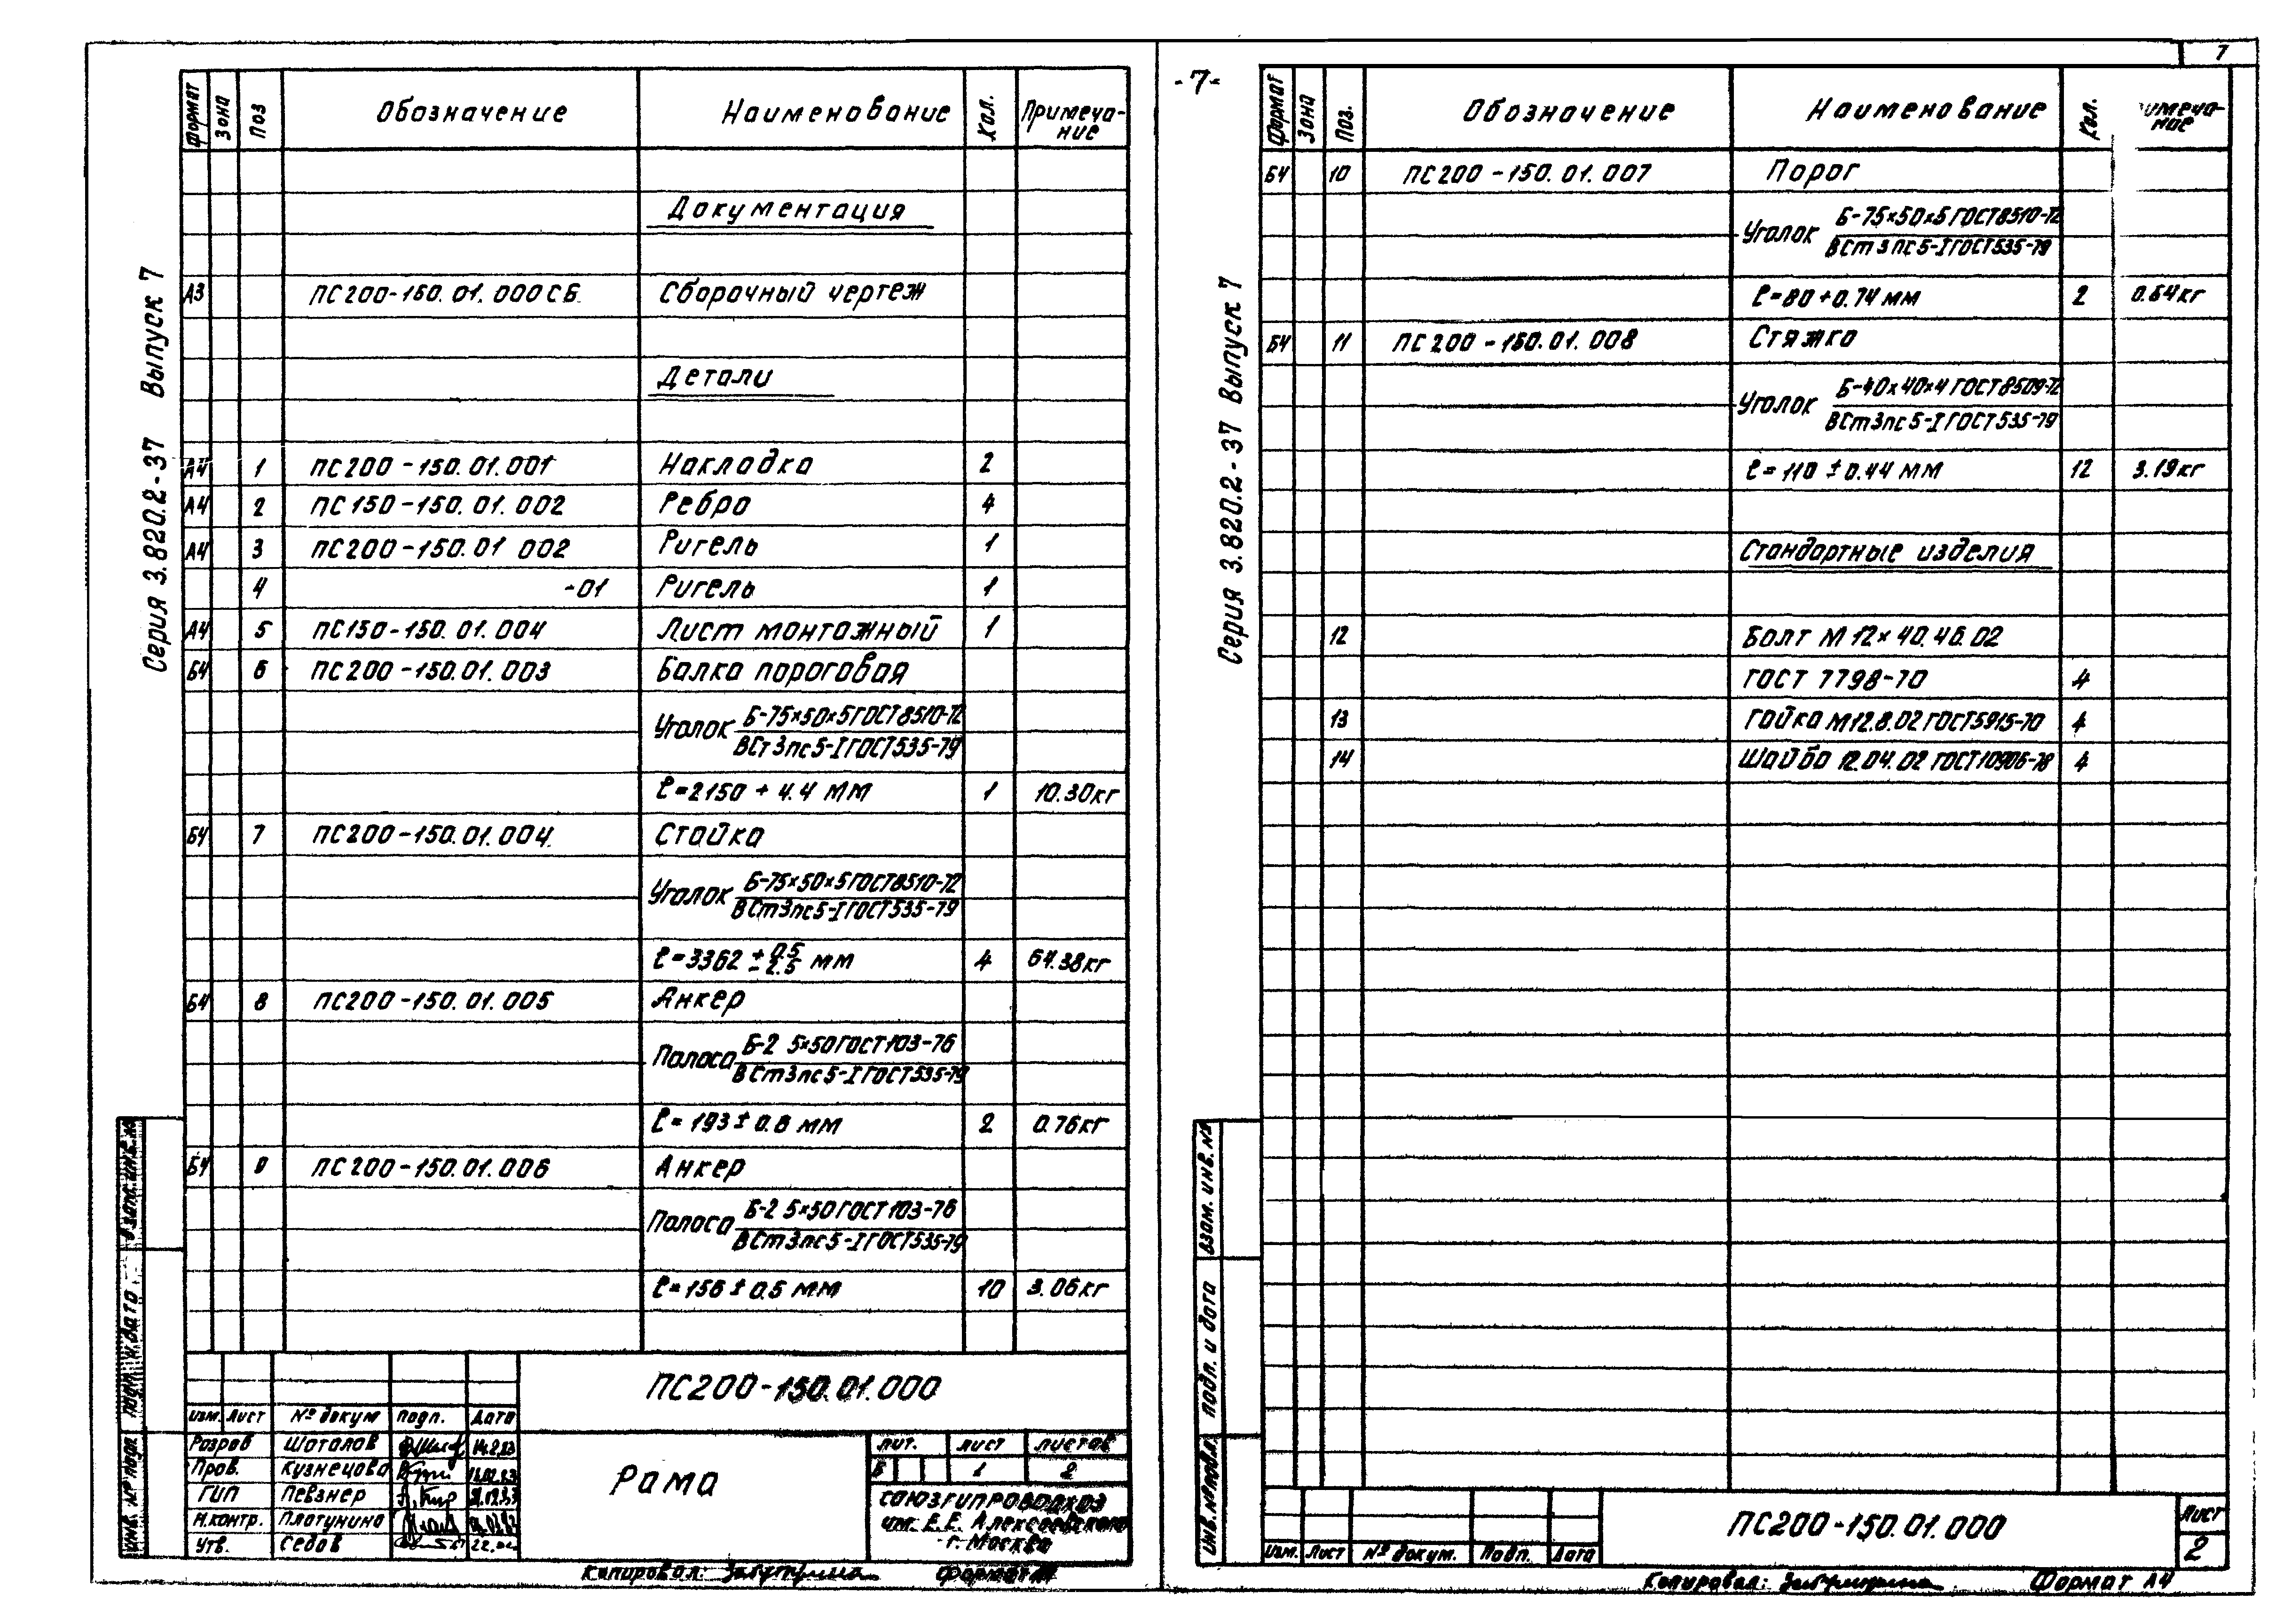 7
-7-
Серия 3.820.2-37 Выпуск 7
Формат Зона Поз Обозначение Наименование Кол. Примеча-
ние
Документация
А3 ПС200-150.01.000СБ Сборочный чертеж
Детали
А4 1 ПС200-150.01.001 Накладка 2
А4 2 ПС150-150.01.002 Ребро 4
А4 3 ПС200-150.01 002 Ригель 1
4 -01 Ригель 1
А4 5 ПС150-150.01.004 Лист монтажный 1
БЧ 6 ПС200-150.01.003 Балка пороговая
Уголок Б-75×50×5 ГОСТ 8510-72
ВСт3пс5-I ГОСТ 535-79
ℓ=2150 + 4.4 мм 1 10.30кг
БЧ 7 ПС200-150.01.004 Стойка
Уголок Б-75×50×5 ГОСТ 8510-72
ВСт3пс5-I ГОСТ 535-79
ℓ=3362 +0.5
-2.5 мм 4 64.38кг
БЧ 8 ПС200-150.01.005 Анкер
Полоса Б-2 5×50 ГОСТ 103-76
ВСт3пс5-I ГОСТ 535-79
ℓ=193 ± 0.8 мм 2 0.76кг
БЧ 9 ПС200-150.01.006 Анкер
Полоса Б-2 5×50 ГОСТ 103-76
ВСт3пс5-I ГОСТ 535-79
ℓ=156 ± 0.5 мм 10 3.06кг
ПС200-150.01.000
Изм. Лист № докум Подп. Дата
Разраб Шаталов
Пров. Кузнецова
ГИП Певзнер
Н.контр. Платунина
Утв. Седов
Рама
Лит. Лист Листов
1 2
СОЮЗГИПРОВОДХОЗ
им. Е.Е. Алексеевского
г. Москва
Копировал: Формат А4
Взам. инв. №
Подп. и дата
Инв. № подл.
Серия 3.820.2-37 Выпуск 7
Формат Зона Поз. Обозначение Наименование Кол. имеча-
ние
БЧ 10 ПС200-150.01.007 Порог
Уголок Б-75×50×5 ГОСТ 8510-72
ВСт3пс5-I ГОСТ 535-79
ℓ=80 +0.74 мм 2 0.64кг
БЧ 11 ПС200-150.01.008 Стяжка
Уголок Б-40×40×4 ГОСТ 8509-72
ВСт3пс5-I ГОСТ 535-79
ℓ=110 ± 0.44 мм 12 3.19кг
Стандартные изделия
12 Болт М12×40.46.02
ГОСТ 7798-70 4
13 Гайка М12.8.02 ГОСТ 5915-70 4
14 Шайба 12.04.02 ГОСТ 10906-78 4
Взам. инв. №
Подп. и дата
Инв. № подл.
Изм. Лист № докум. Подп. Дата
ПС200-150.01.000
Лист
2
Копировал: Формат А4